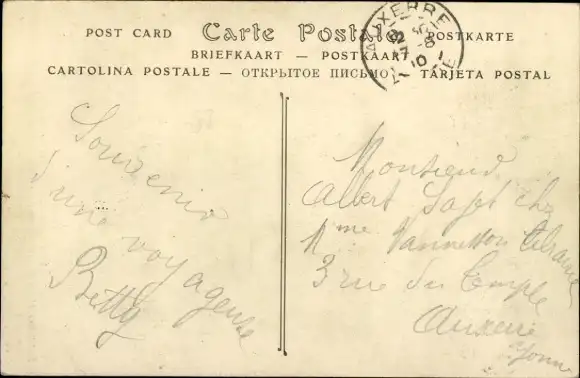 POST CARD Carte Postale POSTKARTE
BRIEFKAART — POSTKAART
CARTOLINA POSTALE — ОТКРЫТОЕ ПИСЬМО — TARJETA POSTAL
AUXERRE
Souvenir
d'une voyageuse
Betty
Monsieur
Albert Sapt chez
Mme
3 rue du Temple
Auxerre
Yonne